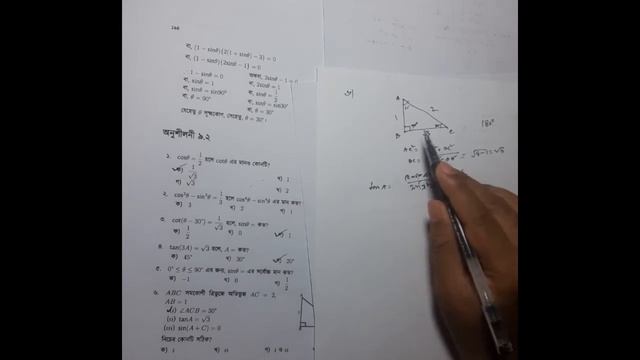 ১৯৪
বা, (1 − sinθ){2(1 + sinθ) − 3} = 0
বা, (1 − sinθ)(2sinθ − 1) = 0
1 − sinθ = 0
বা, sinθ = 1
বা, sinθ = sin90°
বা, θ = 90°
অথবা, 2sinθ − 1 = 0
বা, 2sinθ = 1
বা, sinθ = 1/2
বা, sinθ = sin30°
বা, θ = 30°
যেহেতু θ সূক্ষ্মকোণ, সেহেতু, θ = 30°।
অনুশীলনী ৯.২
১. cosθ = 1/2 হলে cotθ এর মান কোনটি?
ক) 1/√3
খ) 1
গ) √3
ঘ) 2
২. cos²θ − sin²θ = 1/3 হলে cos⁴θ − sin⁴θ এর মান কত?
ক) 3
খ) 2
গ) 1
৩. cot(θ − 30°) = 1/√3 হলে, sinθ = কত?
ক) 1/2
খ) 0
গ) 1
৪. tan(3A) = √3 হলে, A = কত?
ক) 45°
খ) 30°
গ) 20°
৫. 0° ≤ θ ≤ 90° এর জন্য, sinθ = এর সর্বোচ্চ মান কত?
ক) −1
খ) 0
গ) 1/2
৬. ABC সমকোণী ত্রিভুজে অতিভুজ AC = 2,
AB = 1
(i) ∠ACB = 30°
(ii) tanA = √3
(iii) sin(A + C) = 0
নিচের কোনটি সঠিক?
ক) i
খ) ii
গ) i ও ii
A
1
2
B
C
180°
tan A =